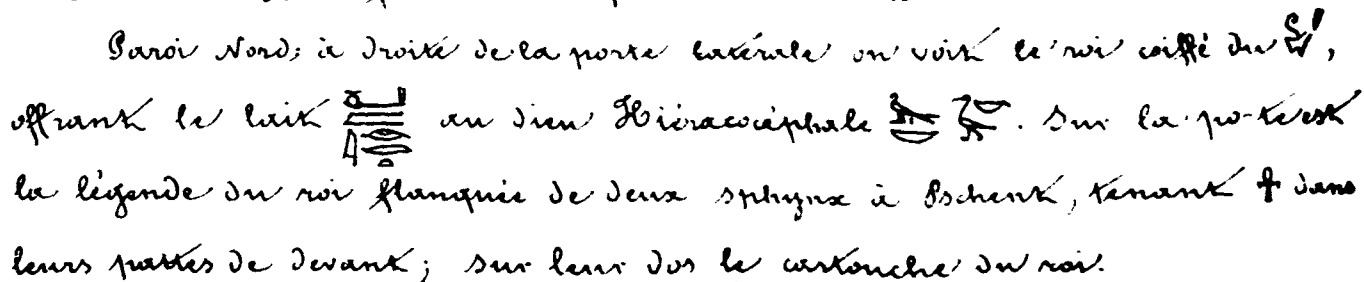 Paroi Nord; à droite de la porte latérale on voit le roi coiffé du ,
offrant le lait au dieu Hiéracocéphale . Sur la porte est
la légende du roi flanquée de deux sphynx à Pschent, tenant 𓋹 dans
leurs pattes de devant; sur leur dos le cartouche du roi.